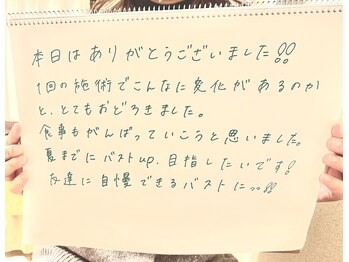 本日はありがとうございました!!
1回の施術でこんなに変化があるのか
と、とてもおどろきました。
食事もがんばっていこうと思いました。
夏までにバストup、目指したいです!
友達に自慢できるバストに…!!